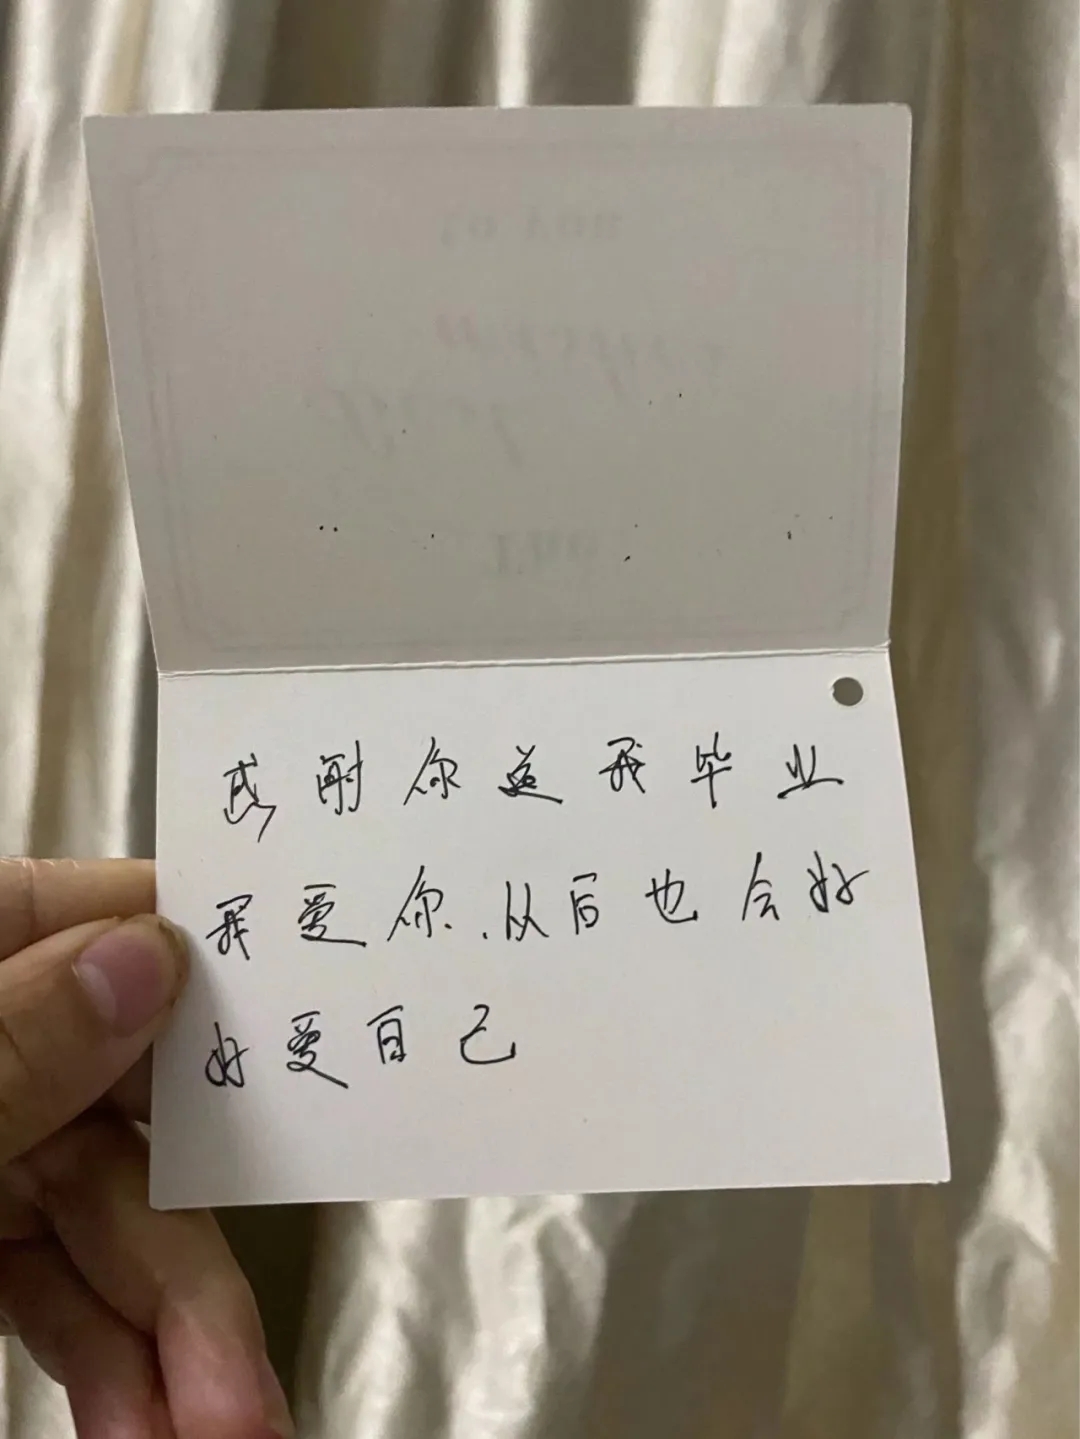 感谢你送我毕业
我爱你.以后也会好
好爱自己